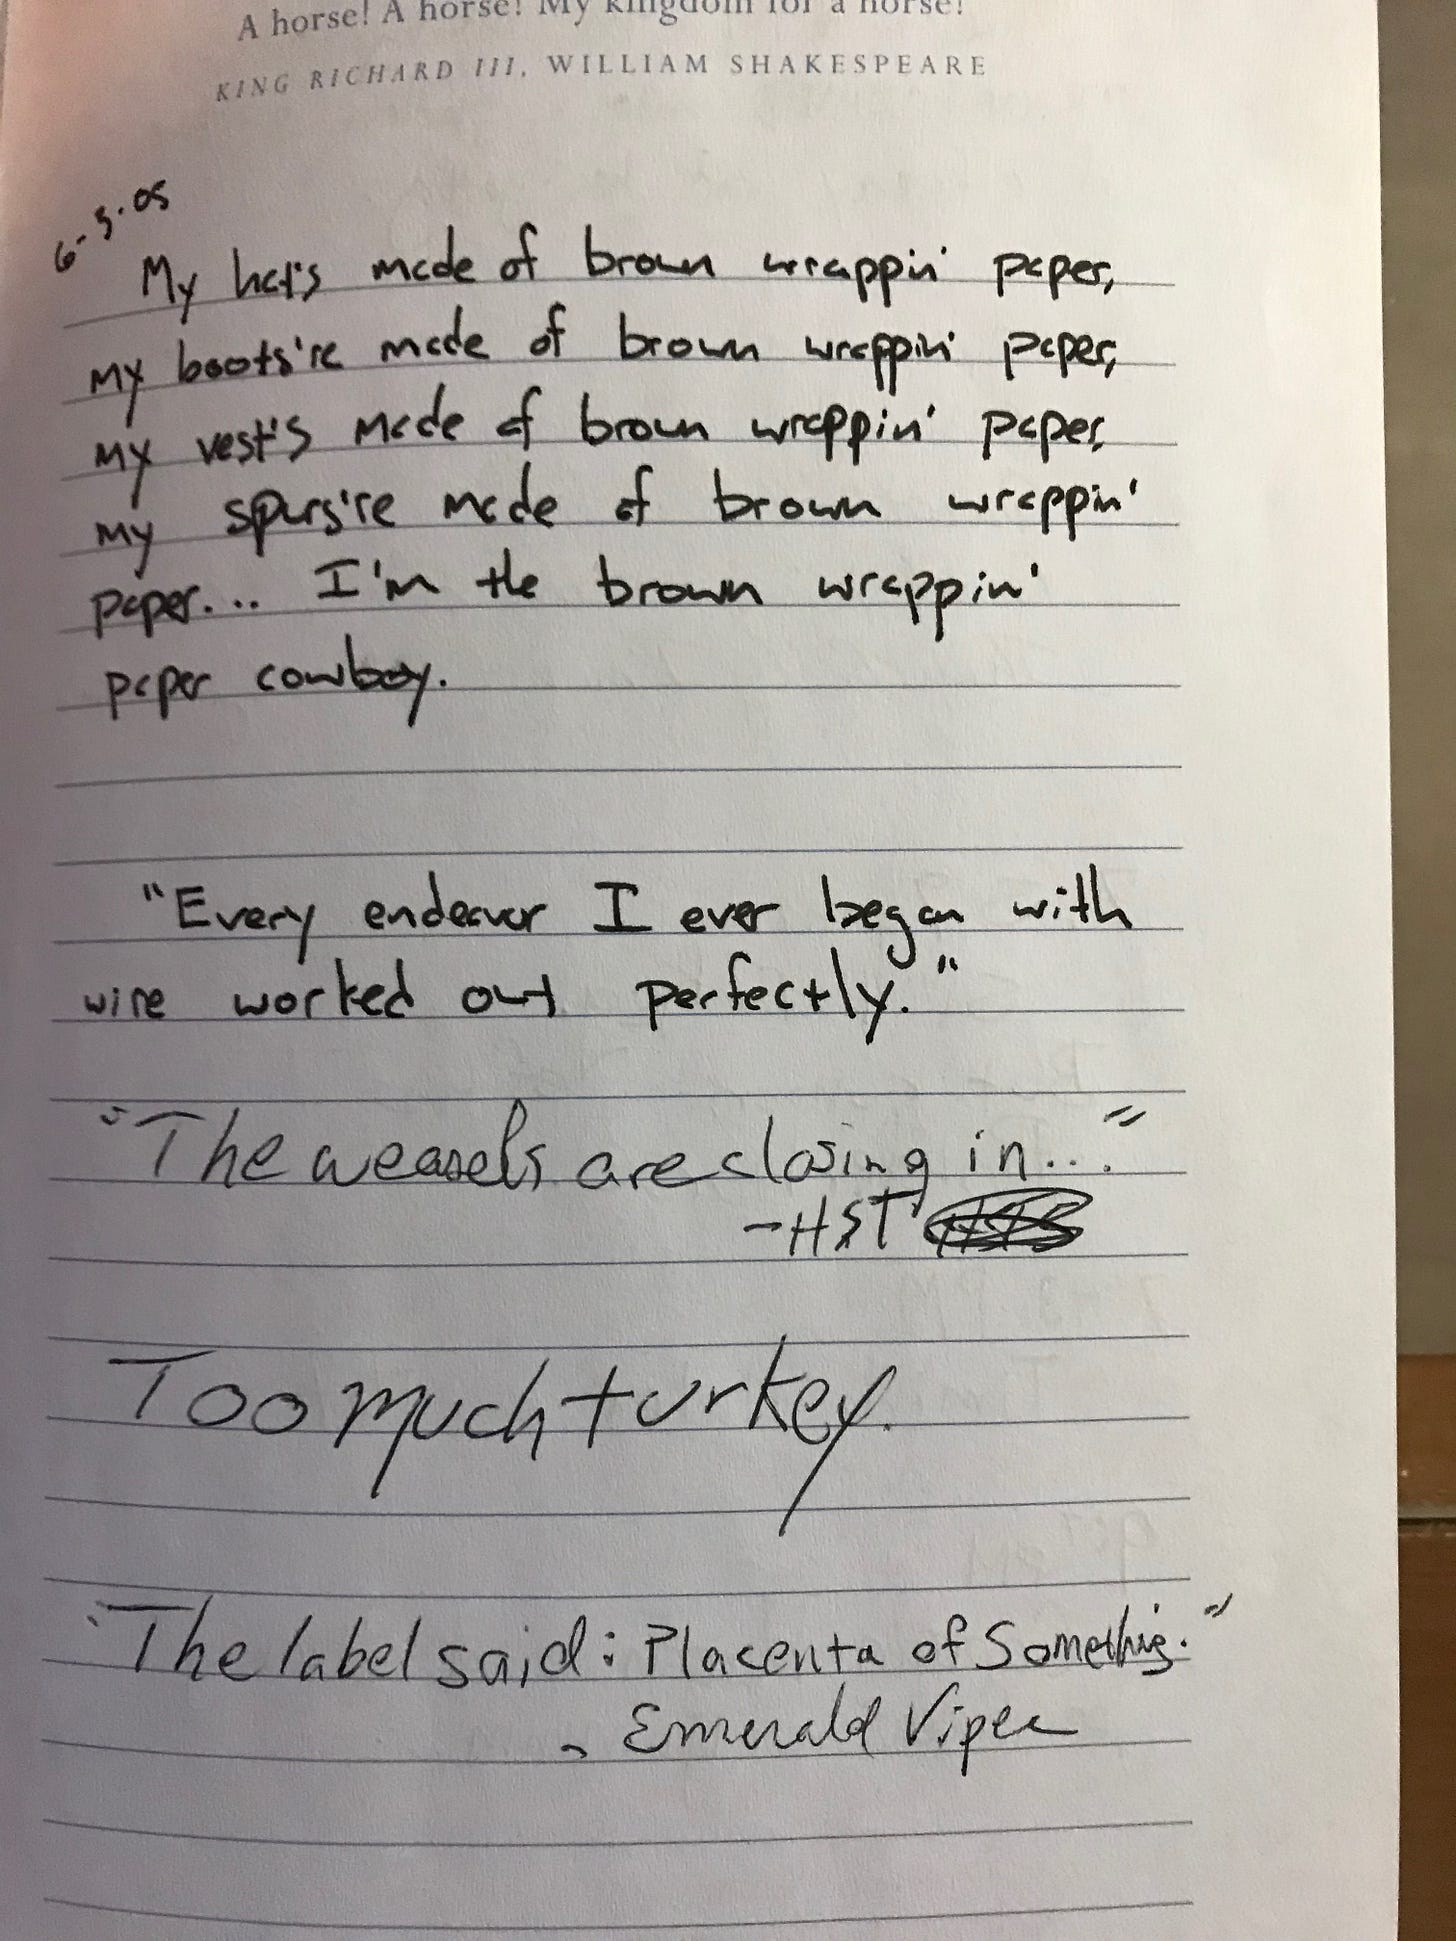 A horse! A horse! My kingdom for a horse!
KING RICHARD III, WILLIAM SHAKESPEARE
6-3-05
My hat's made of brown wrappin' paper,
my boots're made of brown wrappin' paper,
my vest's made of brown wrappin' paper,
my spurs're made of brown wrappin'
paper... I'm the brown wrappin'
paper cowboy.
"Every endeavor I ever began with
wire worked out perfectly."
"The weasels are closing in..."
-HST
Too much turkey.
"The label said: Placenta of Something."
- Emerald Viper